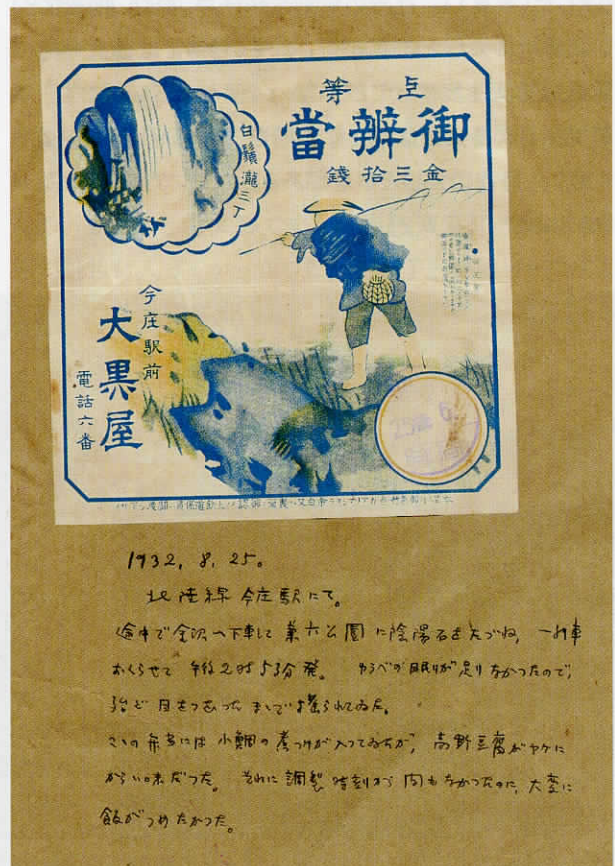 上等
御辨當
金三拾錢
白鬚瀧三丁
今庄駅前
大黒屋
電話六番
1932. 8. 25.
北陸線 今庄駅にて。
途中で金沢へ下車して 兼六公園 に陰陽石をたづね, 一列車
おくらせて 午後2時53分発。 ゆうべの眠りが足りなかつたので,
殆ど 目をつむつた まゝで揺られてゐた。
この弁当には 小鯛の煮つけが入つてゐたが, 高野豆腐がヤケに
からい味だつた。 それに 調製時刻から間もなかつたのに, 大変に
飯がつめたかつた。